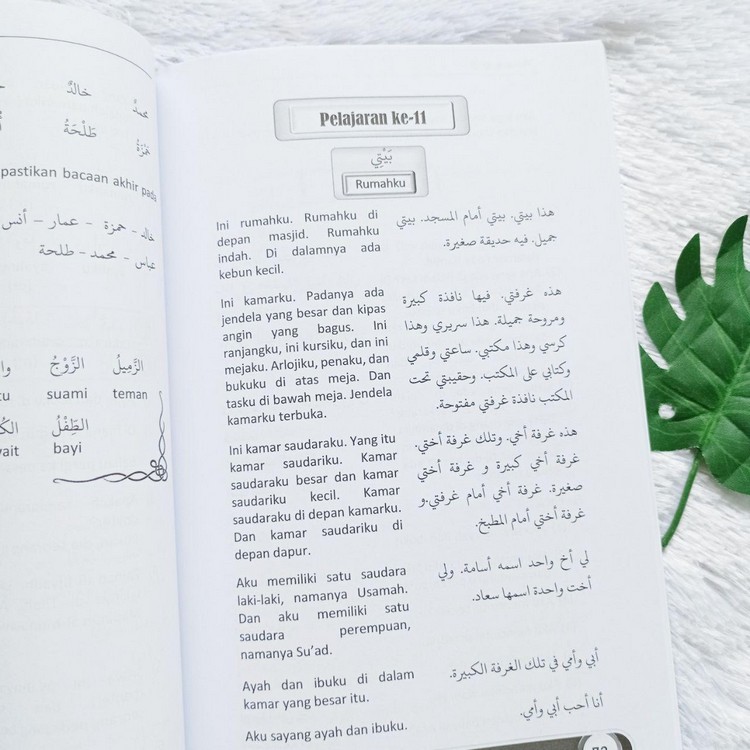 خالدٌ
محمدٌ
طَلْحَةُ
حَمْزَةُ
pastikan bacaan akhir pada
خالد - حمزة - عمار - أنس
عباس - محمد - طلحة
الزَّوْجُ
الزَّمِيلُ
suami
teman
الطِّفْلُ
bayi
Pelajaran ke-11
بَيْتِي
Rumahku
Ini rumahku. Rumahku di
depan masjid. Rumahku
indah. Di dalamnya ada
kebun kecil.
هذا بيتي. بيتي أمام المسجد. بيتي
جميل. فيه حديقة صغيرة.
Ini kamarku. Padanya ada
jendela yang besar dan kipas
angin yang bagus. Ini
ranjangku, ini kursiku, dan ini
mejaku. Arlojiku, penaku, dan
bukuku di atas meja. Dan
tasku di bawah meja. Jendela
kamarku terbuka.
هذه غرفتي. فيها نافذة كبيرة
ومروحة جميلة. هذا سريري وهذا
كرسي وهذا مكتبي. ساعتي وقلمي
وكتابي على المكتب. وحقيبتي تحت
المكتب نافذة غرفتي مفتوحة.
Ini kamar saudaraku. Yang itu
kamar saudariku. Kamar
saudaraku besar dan kamar
saudariku kecil. Kamar
saudaraku di depan kamarku.
Dan kamar saudariku di
depan dapur.
هذه غرفة أخي. وتلك غرفة أختي.
غرفة أخي كبيرة و غرفة أختي
صغيرة. غرفة أخي أمام غرفتي.و
غرفة أختي أمام المطبخ.
Aku memiliki satu saudara
laki-laki, namanya Usamah.
Dan aku memiliki satu
saudara perempuan,
namanya Su'ad.
لي أخ واحد اسمه أسامة. ولي
أخت واحدة اسمها سعاد.
Ayah dan ibuku di dalam
kamar yang besar itu.
أبي وأمي في تلك الغرفة الكبيرة.
Aku sayang ayah dan ibuku.
أنا أحب أبي وأمي.